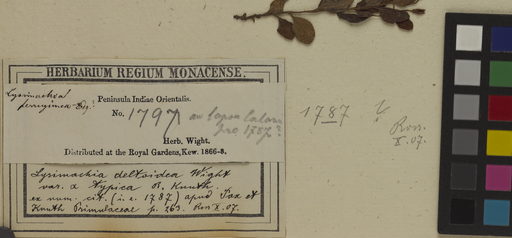 HERBARIUM REGIUM MONACENSE.
Lysimachia
ferruginea Edg.!
Peninsula Indiae Orientalis.
No. 1797 an lapsu calami
pro 1787?
Herb. Wight.
Distributed at the Royal Gardens, Kew. 1866-8.
Lysimachia deltoidea Wight
var. α typica R. Knuth.
ex num. cit. (i. e. 1787) apud Pax et
Knuth Primulaceae p. 263. Ros X. 07.
1787 ?
Ros.
X. 07.